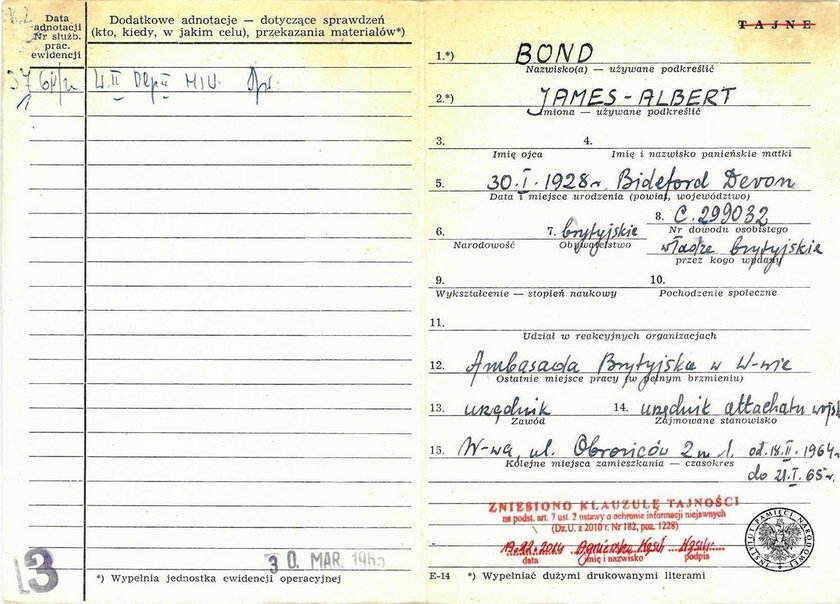 Data
adnotacji
Nr służb.
prac.
ewidencji
Dodatkowe adnotacje — dotyczące sprawdzeń
(kto, kiedy, w jakim celu), przekazania materiałów*)
W. II Dep II
*) Wypełnia jednostka ewidencji operacyjnej
3
30. MAR. 1965
TAJNE
1.*) BOND
Nazwisko(a) — używane podkreślić
2.*) JAMES-ALBERT
Imiona — używane podkreślić
3. 4.
Imię ojca Imię i nazwisko panieńskie matki
5. 30.I.1928r. Bideford Devon
Data i miejsce urodzenia (powiat, województwo)
6. 7. brytyjskie 8. C.299032
Narodowość Obywatelstwo Nr dowodu osobistego
władze brytyjskie
przez kogo wydany
9. 10.
Wykształcenie — stopień naukowy Pochodzenie społeczne
11.
Udział w reakcyjnych organizacjach
12. Ambasada Brytyjska w W-wie
Ostatnie miejsce pracy (w pełnym brzmieniu)
13. urzędnik 14. urzędnik attachatu wojsk
Zawód Zajmowane stanowisko
15. W-wa, ul. Obrońców 2 m 1. od 18.II.1964r
Kolejne miejsca zamieszkania — czasokres
do 21.I.65r.
ZNIESIONO KLAUZULĘ TAJNOŚCI
na podst. art. 7 ust. 2 ustawy o ochronie informacji niejawnych
(Dz.U. z 2010 r. Nr 182, poz. 1228)
Agnieszka
data imię i nazwisko podpis
INSTYTUT PAMIĘCI NARODOWEJ
E-14 *) Wypełniać dużymi drukowanymi literami